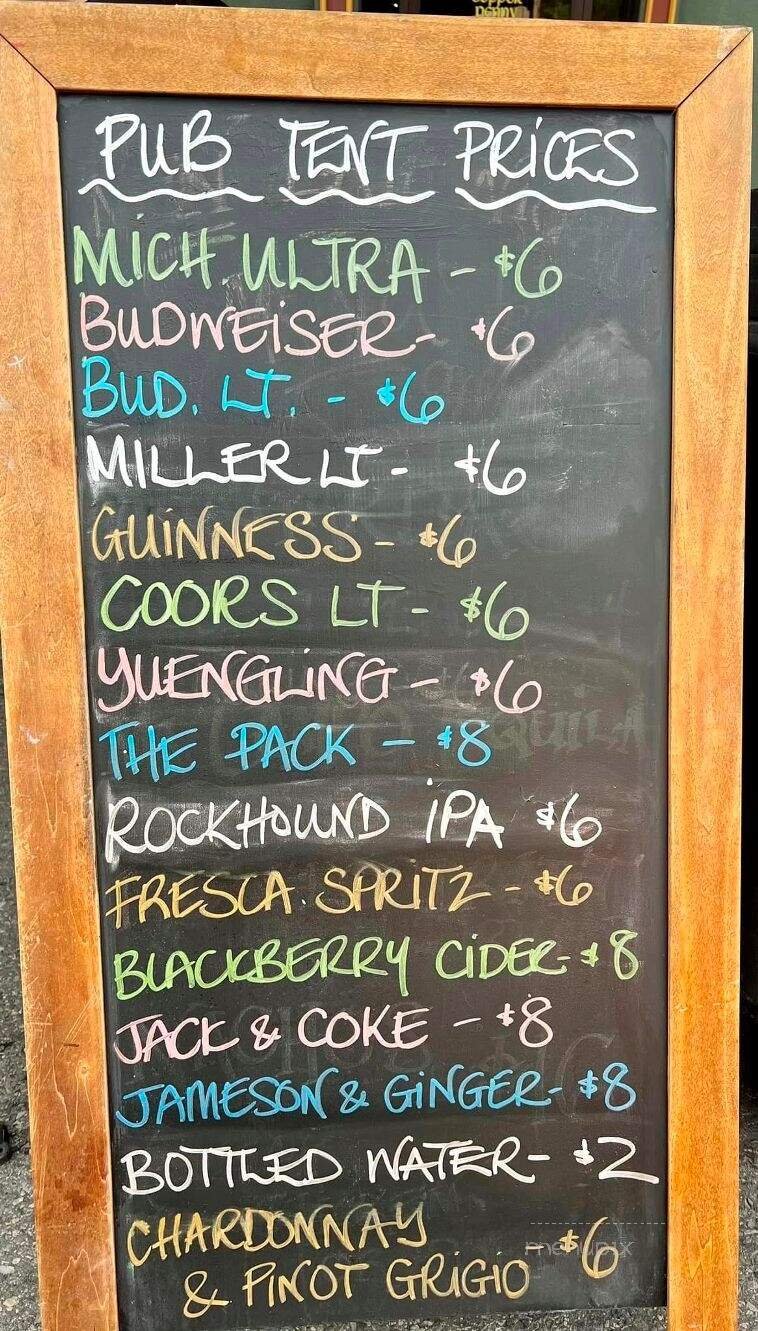 COPPER
PENNY
PUB TENT PRICES
MICH. ULTRA - $6
BUDWEISER- $6
BUD. LT. - $6
MILLER LT - $6
GUINNESS - $6
COORS LT - $6
YUENGLING - $6
THE PACK - $8
ROCKHOUND IPA $6
FRESCA. SPRITZ - $6
BLACKBERRY CIDER- $8
JACK & COKE - $8
JAMESON & GINGER- $8
BOTTLED WATER- $2
CHARDONNAY
& PINOT GRIGIO - $6
menupix